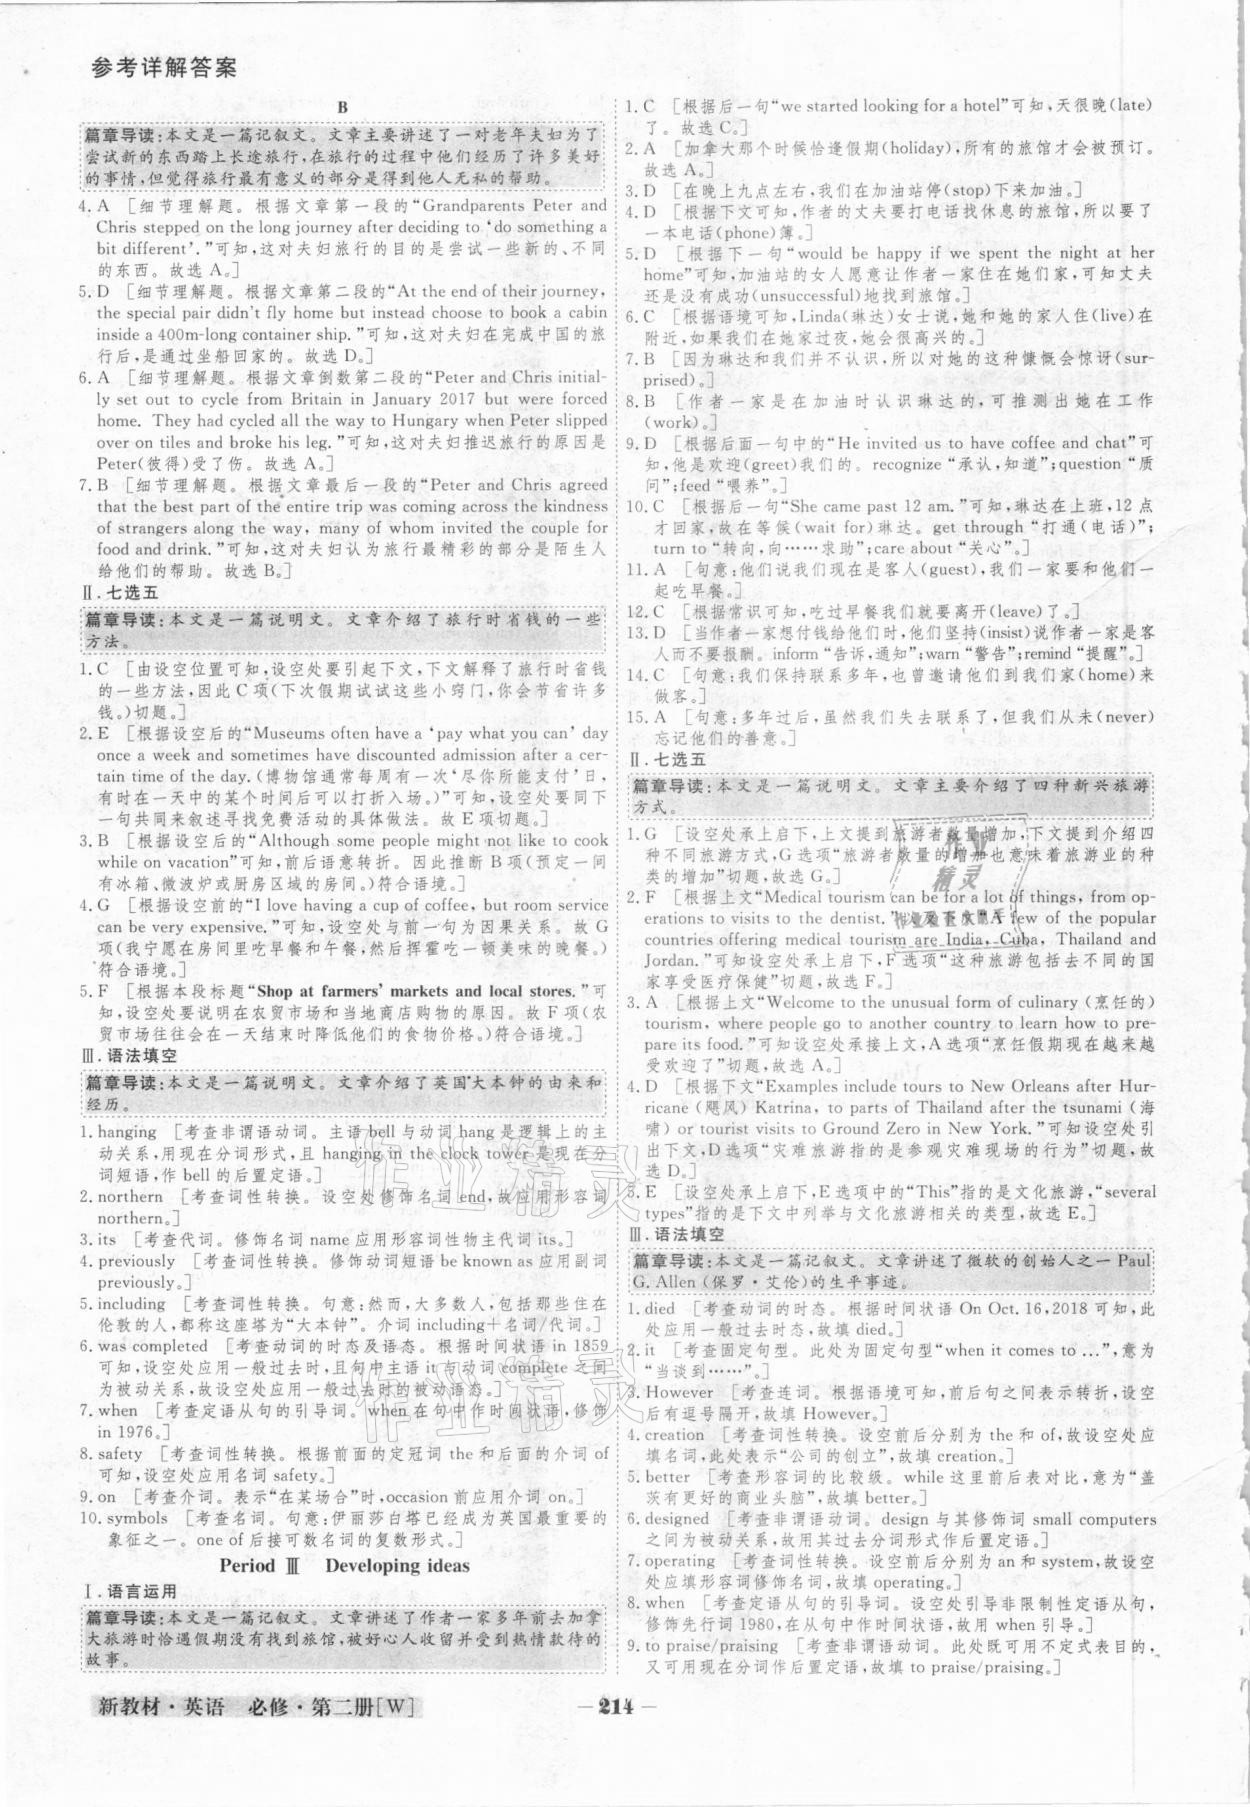 参考详解答案
B
篇章导读:本文是一篇记叙文。文章主要讲述了一对老年夫妇为了
尝试新的东西踏上长途旅行,在旅行的过程中他们经历了许多美好
的事情,但觉得旅行最有意义的部分是得到他人无私的帮助。
4. A [细节理解题。根据文章第一段的“Grandparents Peter and
Chris stepped on the long journey after deciding to ‘do something a
bit different’.”可知,这对夫妇旅行的目的是尝试一些新的、不同
的东西。故选 A。]
5. D [细节理解题。根据文章第二段的“At the end of their journey,
the special pair didn't fly home but instead choose to book a cabin
inside a 400m-long container ship.”可知,这对夫妇在完成中国的旅
行后,是通过坐船回家的。故选 D。]
6. A [细节理解题。根据文章倒数第二段的“Peter and Chris initial-
ly set out to cycle from Britain in January 2017 but were forced
home. They had cycled all the way to Hungary when Peter slipped
over on tiles and broke his leg.”可知,这对夫妇推迟旅行的原因是
Peter(彼得)受了伤。故选 A。]
7. B [细节理解题。根据文章最后一段的“Peter and Chris agreed
that the best part of the entire trip was coming across the kindness
of strangers along the way, many of whom invited the couple for
food and drink.”可知,这对夫妇认为旅行最精彩的部分是陌生人
给他们的帮助。故选 B。]
Ⅱ.七选五
篇章导读:本文是一篇说明文。文章介绍了旅行时省钱的一些
方法。
1. C [由设空位置可知,设空处要引起下文,下文解释了旅行时省钱
的一些方法,因此 C 项(下次假期试试这些小窍门,你会节省许多
钱。)切题。]
2. E [根据设空后的“Museums often have a ‘pay what you can’ day
once a week and sometimes have discounted admission after a cer-
tain time of the day.(博物馆通常每周有一次‘尽你所能支付’日,
有时在一天中的某个时间后可以打折入场。)”可知,设空处要同下
一句共同来叙述寻找免费活动的具体做法。故 E 项切题。]
3. B [根据设空后的“Although some people might not like to cook
while on vacation”可知,前后语意转折。因此推断 B 项(预定一间
有冰箱、微波炉或厨房区域的房间。)符合语境。]
4. G [根据设空前的“I love having a cup of coffee, but room service
can be very expensive.”可知,设空处与前一句为因果关系。故 G
项(我宁愿在房间里吃早餐和午餐,然后挥霍吃一顿美味的晚餐。)
符合语境。]
5. F [根据本段标题“Shop at farmers' markets and local stores.”可
知,设空处要说明在农贸市场和当地商店购物的优点。故 F 项(农
贸市场往往会在一天结束时降低他们的食物价格。)符合语境。]
Ⅲ.语法填空
篇章导读:本文是一篇说明文。文章介绍了英国大本钟的由来和
经历。
1. hanging [考查非谓语动词。主语 bell 与动词 hang 是逻辑上的主
动关系,用现在分词形式,且 hanging in the clock tower 是现在分
词短语,作 bell 的后置定语。]
2. northern [考查词性转换。设空处修饰名词 end,故应用形容词
northern。]
3. its [考查代词。修饰名词 name 应用形容词性物主代词 its。]
4. previously [考查词性转换。修饰动词短语 be known as 应用副词
previously。]
5. including [考查词性转换。句意:然而,大多数人,包括那些住在
伦敦的人,都称这座塔为“大本钟”。介词 including+名词/代词。]
6. was completed [考查动词的时态及语态。根据时间状语 in 1859
可知,设空处应用一般过去时,且句中主语 it 与动词 complete 之间
为被动关系,故设空处应用一般过去时的被动语态。]
7. when [考查定语从句的引导词。when 在句中作时间状语,修饰
in 1976。]
8. safety [考查词性转换。根据前面的定冠词 the 和后面的介词 of
可知,设空处应用名词 safety。]
9. on [考查介词。表示“在某场合”时,occasion 前应用介词 on。]
10. symbols [考查名词。句意:伊丽莎白塔已经成为英国最重要的
象征之一。one of 后接可数名词的复数形式。]
Period Ⅲ Developing ideas
Ⅰ.语言运用
篇章导读:本文是一篇记叙文。文章讲述了作者一家多年前去加拿
大旅游时恰遇假期没有找到旅馆,被好心人收留并受到热情款待的
故事。
1. C [根据后一句“we started looking for a hotel”可知,天很晚(late)
了。故选 C。]
2. A [加拿大那个时候恰逢假期(holiday),所有的旅馆才会被预订。
故选 A。]
3. D [在晚上九点左右,我们在加油站停(stop)下来加油。]
4. D [根据下文可知,作者的丈夫要打电话找休息的旅馆,所以要了
一本电话(phone)簿。]
5. D [根据下一句“would be happy if we spent the night at her
home”可知,加油站的女人愿意让作者一家住在她们家,可知丈夫
还是没有成功(unsuccessful)地找到旅馆。]
6. C [根据语境可知,Linda(琳达)女士说,她和她的家人住(live)在
附近,如果我们在她家过夜,她会很高兴的。]
7. B [因为琳达和我们并不认识,所以对她的这种慷慨会惊讶(sur-
prised)。]
8. B [作者一家是在加油时认识琳达的,可推测出她在工作
(work)。]
9. D [根据后面一句中的“He invited us to have coffee and chat”可
知,他是欢迎(greet)我们的。recognize “承认,知道”;question “质
问”;feed “喂养”。]
10. C [根据后一句“She came past 12 am.”可知,琳达在上班,12 点
才回家,故在等候(wait for)琳达。get through “打通(电话)”;
turn to “转向,向……求助”;care about “关心”。]
11. A [句意:他们说我们现在是客人(guest),我们一家要和他们一
起吃早餐。]
12. C [根据常识可知,吃过早餐我们就要离开(leave)了。]
13. D [当作者一家想付钱给他们时,他们坚持(insist)说作者一家是客
人而不要报酬。inform “告诉,通知”;warn “警告”;remind “提醒”。]
14. C [句意:我们保持联系多年,也曾邀请他们到我们家(home)来
做客。]
15. A [句意:多年过后,虽然我们失去联系了,但我们从未(never)
忘记他们的善意。]
Ⅱ.七选五
篇章导读:本文是一篇说明文。文章主要介绍了四种新兴旅游
方式。
1. G [设空处承上启下,上文提到旅游者数量增加,下文提到介绍四
种不同旅游方式,G 选项“旅游者数量的增加也意味着旅游业的种
类的增加”切题,故选 G。]
2. F [根据上文“Medical tourism can be for a lot of things, from op-
erations to visits to the dentist.”以及下文“A few of the popular
countries offering medical tourism are India, Cuba, Thailand and
Jordan.”可知设空处承上启下,F 选项“这种旅游包括去不同的国
家享受医疗保健”切题,故选 F。]
3. A [根据上文“Welcome to the unusual form of culinary (烹饪的)
tourism, where people go to another country to learn how to pre-
pare its food.”可知设空处承接上文,A 选项“烹饪假期现在越来越
受欢迎了”切题,故选 A。]
4. D [根据下文“Examples include tours to New Orleans after Hur-
ricane (飓风) Katrina, to parts of Thailand after the tsunami (海
啸) or tourist visits to Ground Zero in New York.”可知设空处引
出下文,D 选项“灾难旅游指的是参观灾难现场的行为”切题,故
选 D。]
5. E [设空处承上启下,E 选项中的“This”指的是文化旅游,“several
types”指的是下文中列举与文化旅游相关的类型,故选 E。]
Ⅲ.语法填空
篇章导读:本文是一篇记叙文。文章讲述了微软的创始人之一 Paul
G. Allen (保罗·艾伦)的生平事迹。
1. died [考查动词的时态。根据时间状语 On Oct. 16,2018 可知,此
处应用一般过去时态,故填 died。]
2. it [考查固定句型。此处为固定句型“when it comes to ...”,意为
“当谈到……”。]
3. However [考查连词。根据语境可知,前后句之间表示转折,设空
后有逗号隔开,故填 However。]
4. creation [考查词性转换。设空前后分别为 the 和 of,故设空处应
填名词,此处表示“公司的创立”,故填 creation。]
5. better [考查形容词的比较级。while 这里前后表对比,意为“盖
茨有更好的商业头脑”,故填 better。]
6. designed [考查非谓语动词。design 与其修饰词 small computers
之间为被动关系,故用其过去分词形式作后置定语。]
7. operating [考查词性转换。设空前后分别为 an 和 system,故设空
处应填形容词修饰名词,故填 operating。]
8. when [考查定语从句的引导词。设空处引导非限制性定语从句,
修饰先行词 1980,在从句中作时间状语,故用 when 引导。]
9. to praise/praising [考查非谓语动词。此处既可用不定式表目的,
又可用现在分词作后置定语,故填 to praise/praising。]
新教材·英语 必修·第二册[W]
– 214 –
作业
精灵
作业精灵
作业精灵